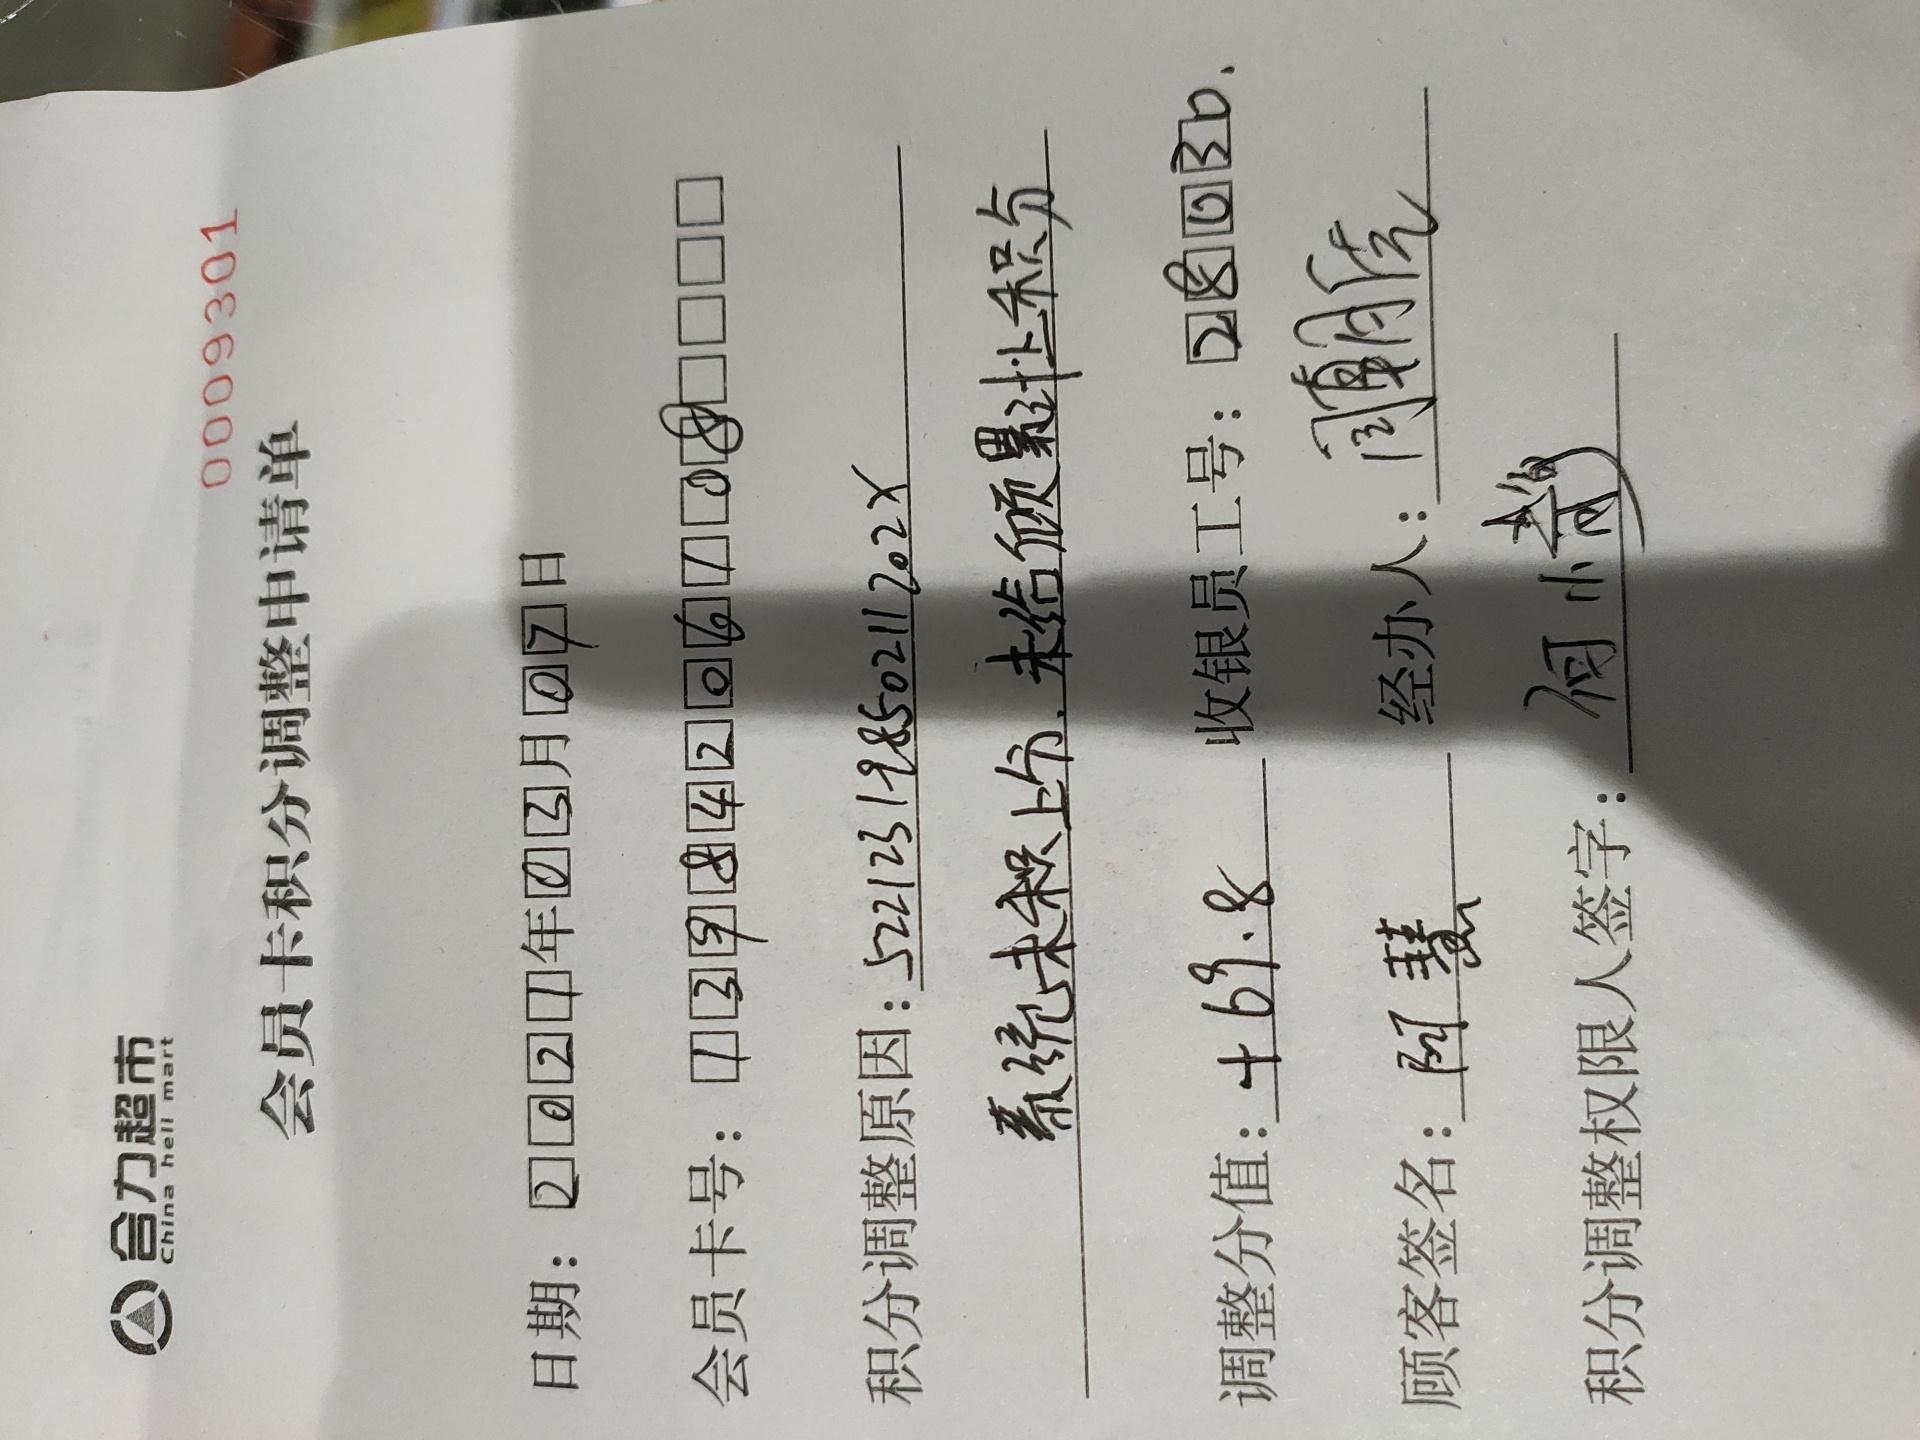 合力超市
China heli mart
0009301
会员卡积分调整申请单
日期：2021年03月07日
会员卡号：13984206108
积分调整原因：52212319850211202X
系统未积上分，未给顾累计上积分
调整分值：+69.8 收银员工号：28030.
顾客签名：阿慧 经办人：
积分调整权限人签字：何小